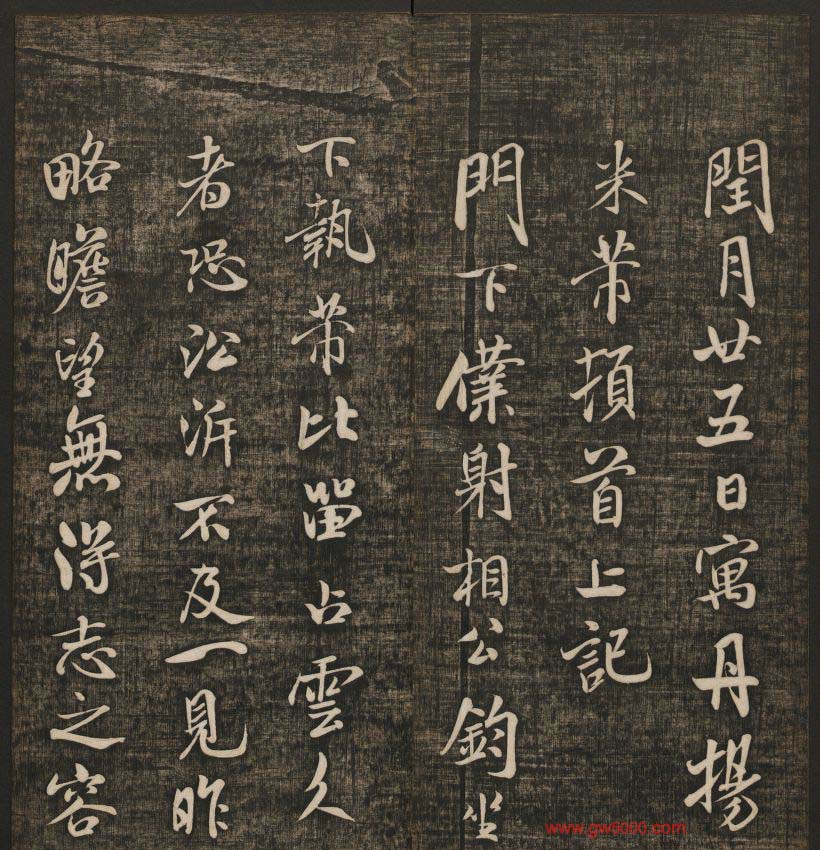 閏月廿五日寓丹揚
米芾頓首上記
門下僕射相公鈞坐
下執芾比留占雲久
者恐沿泝不及一見昨
略瞻望無得志之容